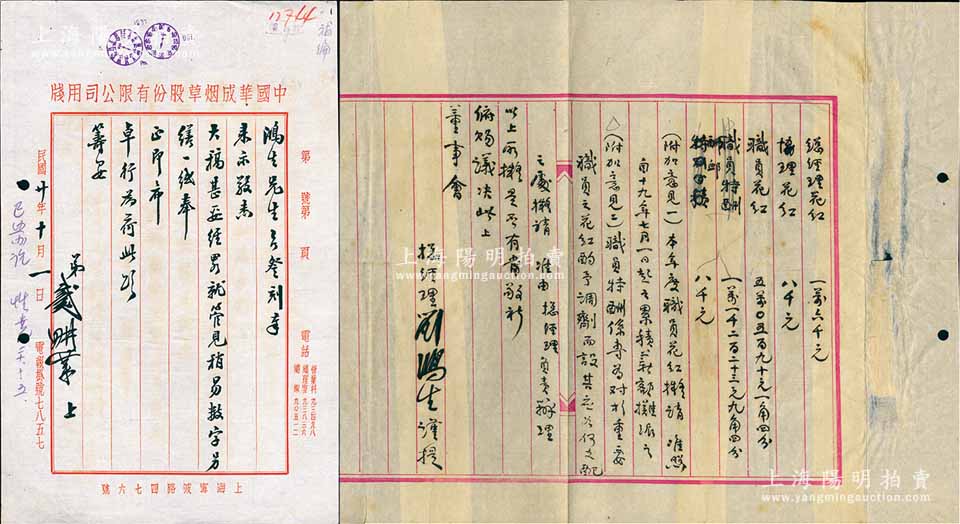 中國華成烟草股份有限公司用牋
第 號第 頁
電話
鴻生先生台鑒刻奉
來示敬悉
大稿甚妥經男就管見稍易數字另
繕一紙奉
正即希
卓行為荷此頌
籌安
弟 戴畊莘 上
民國廿年十月一日
電報掛號七八五七
上海寧波路四七六號
總經理花紅 一萬六千元
協理花紅 八千元
職員花紅 五萬〇五百九十六元一角四分
職員特酬 一萬一千二百二十三元九角四分
八千元
(附加意見一)本年度職員花紅擬請 准照
自十九年七月一日起之累積薪額攤派之
(附加意見二)職員特酬係專為對於重要
職員之花紅酌予調劑而設其應如何支配
之處擬請 准由總經理負責辦理
以上所擬是否有當敬祈
俯賜議決此上
董事會
總經理劉鴻生謹提
上海陽明拍賣
www.yangmingauction.com
上海陽明拍賣
www.yangmingauction.com